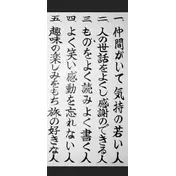 一 仲間がいて気持の若い人
二 人の世話をよくし感謝のできる人
三 ものをよく読みよく書く人
四 よく笑い感動を忘れない人
五 趣味の楽しみをもち旅の好きな人